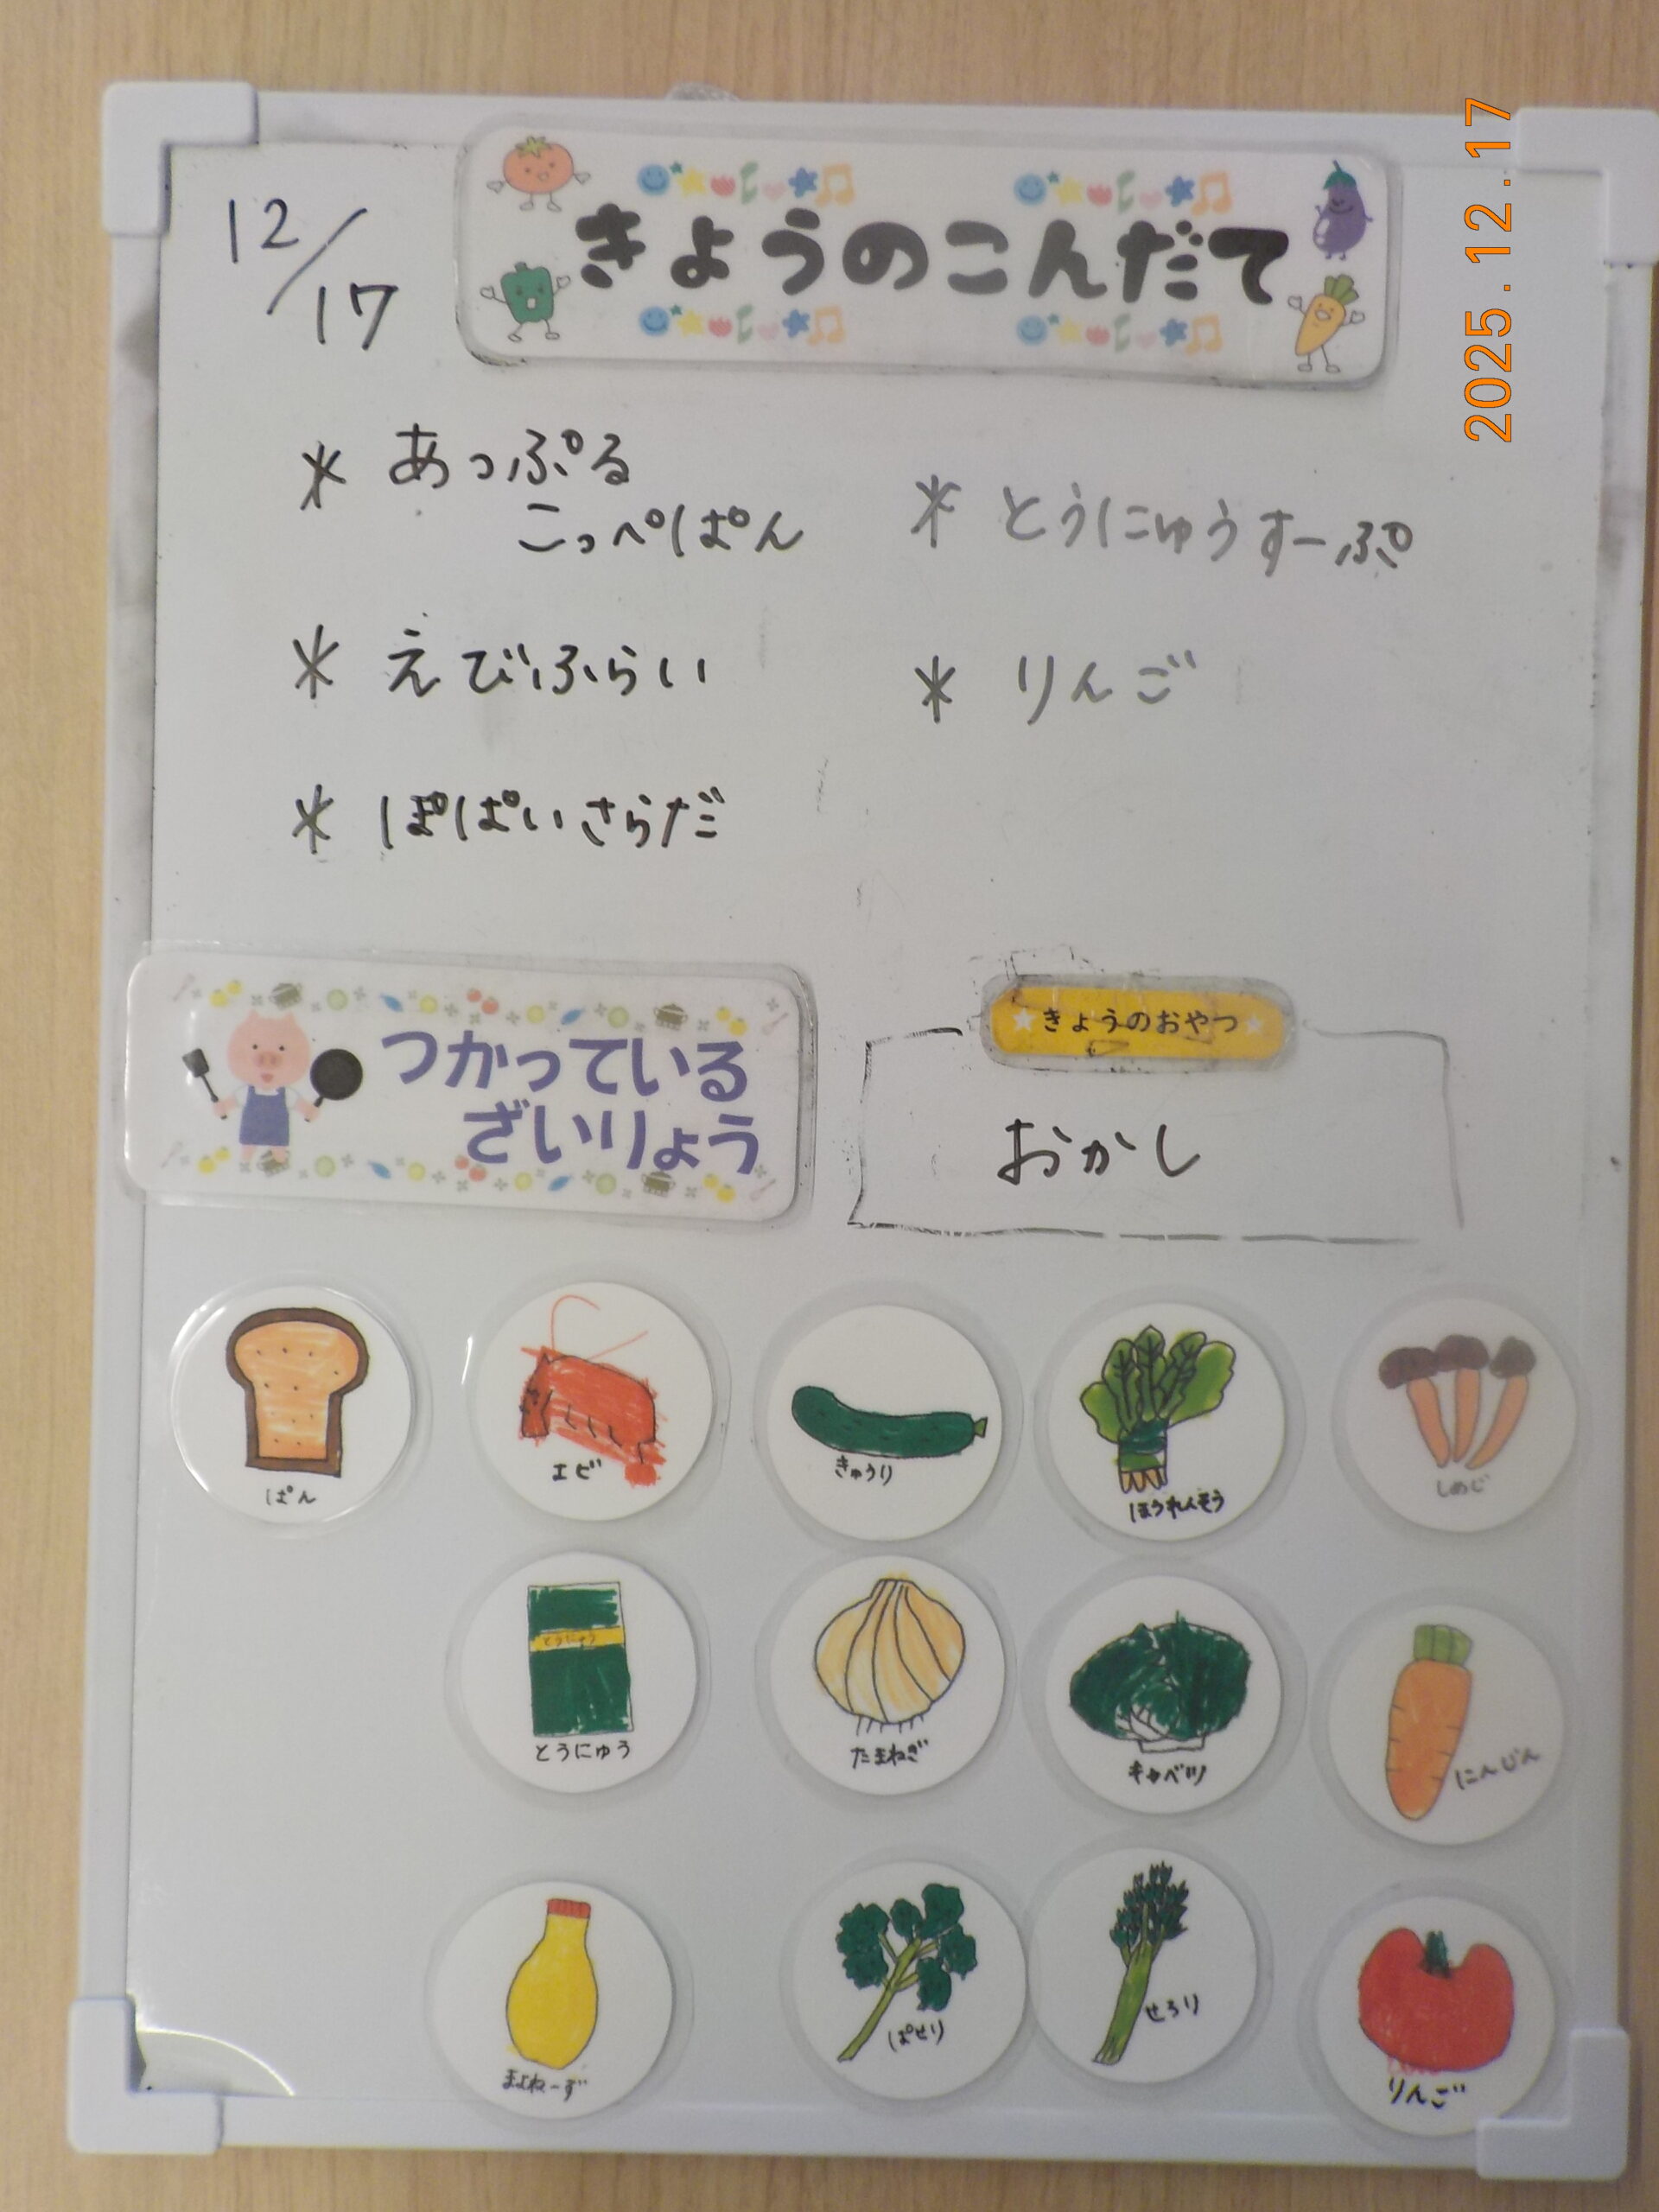 12/17
きょうのこんだて
2025.12.17
* あっぷる
こっぺぱん
* えびふらい
* ぽぱいさらだ
* とうにゅうすーぷ
* りんご
つかっている
ざいりょう
きょうのおやつ
おかし
ぱん
エビ
きゅうり
ほうれんそう
しめじ
とうにゅう
とうにゅう
たまねぎ
キャベツ
にんじん
まよねーず
ぱせり
せろり
りんご